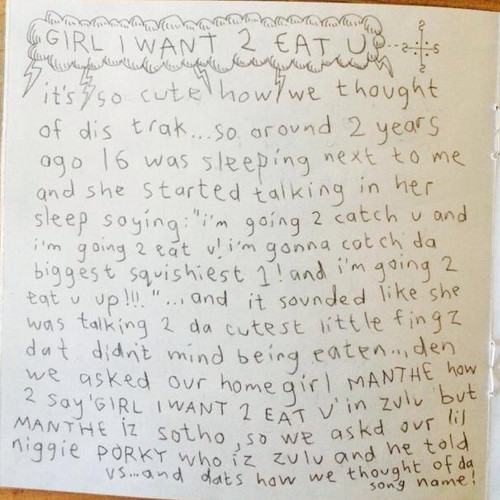 GIRL I WANT 2 EAT U
it's so cute how we thought
of dis trak...so around 2 years
ago 16 was sleeping next to me
and she started talking in her
sleep saying:"i'm going 2 catch u and
i'm going 2 eat u! i'm gonna catch da
biggest squishiest 1! and i'm going 2
eat u up!!!."...and it sounded like she
was talking 2 da cutest little fingz
dat didn't mind being eaten...den
we asked our homegirl MANTHE how
2 say 'GIRL I WANT 2 EAT U' in zulu but
MANTHE iz sotho, so we askd our lil
niggie PORKY who iz zulu and he told
us...and dats how we thought of da
song name!